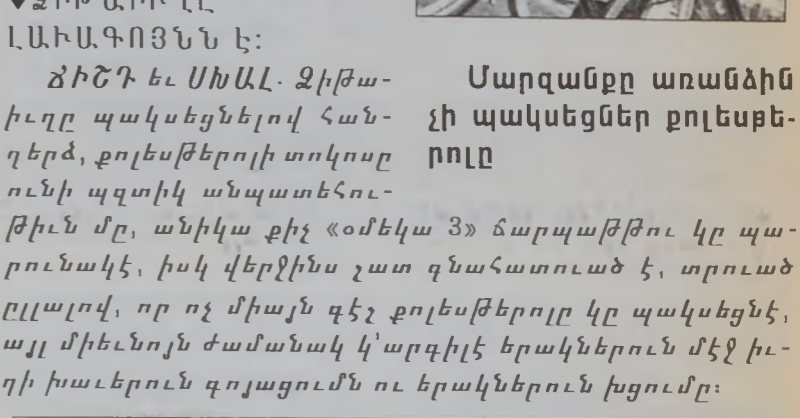 ԼԱՒԱԳՈՅՆՆ է։
ՃԻՇԴ եւ ՍԽԱԼ. Ձիթա-
իւղը պակսեցնելով հան-
դերձ, քոլեսթերոլի տոկոսը
ունի պզտիկ անպատեհու-
թիւն մը, անիկա քիչ «օմեկա 3» ճարպաթթու կը պա-
րունակէ, իսկ վերջինս շատ գնահատուած է, տրուած
ըլլալով, որ ոչ միայն գէշ քոլեսթերոլը կը պակսեցնէ,
այլ միեւնոյն ժամանակ կ՚արգիլէ երակներուն մէջ իւ-
ղի խաւերուն գոյացումն ու երակներուն խցումը։
Մարզանքը առանձին
չի պակսեցներ քոլեսթե-
րոլը